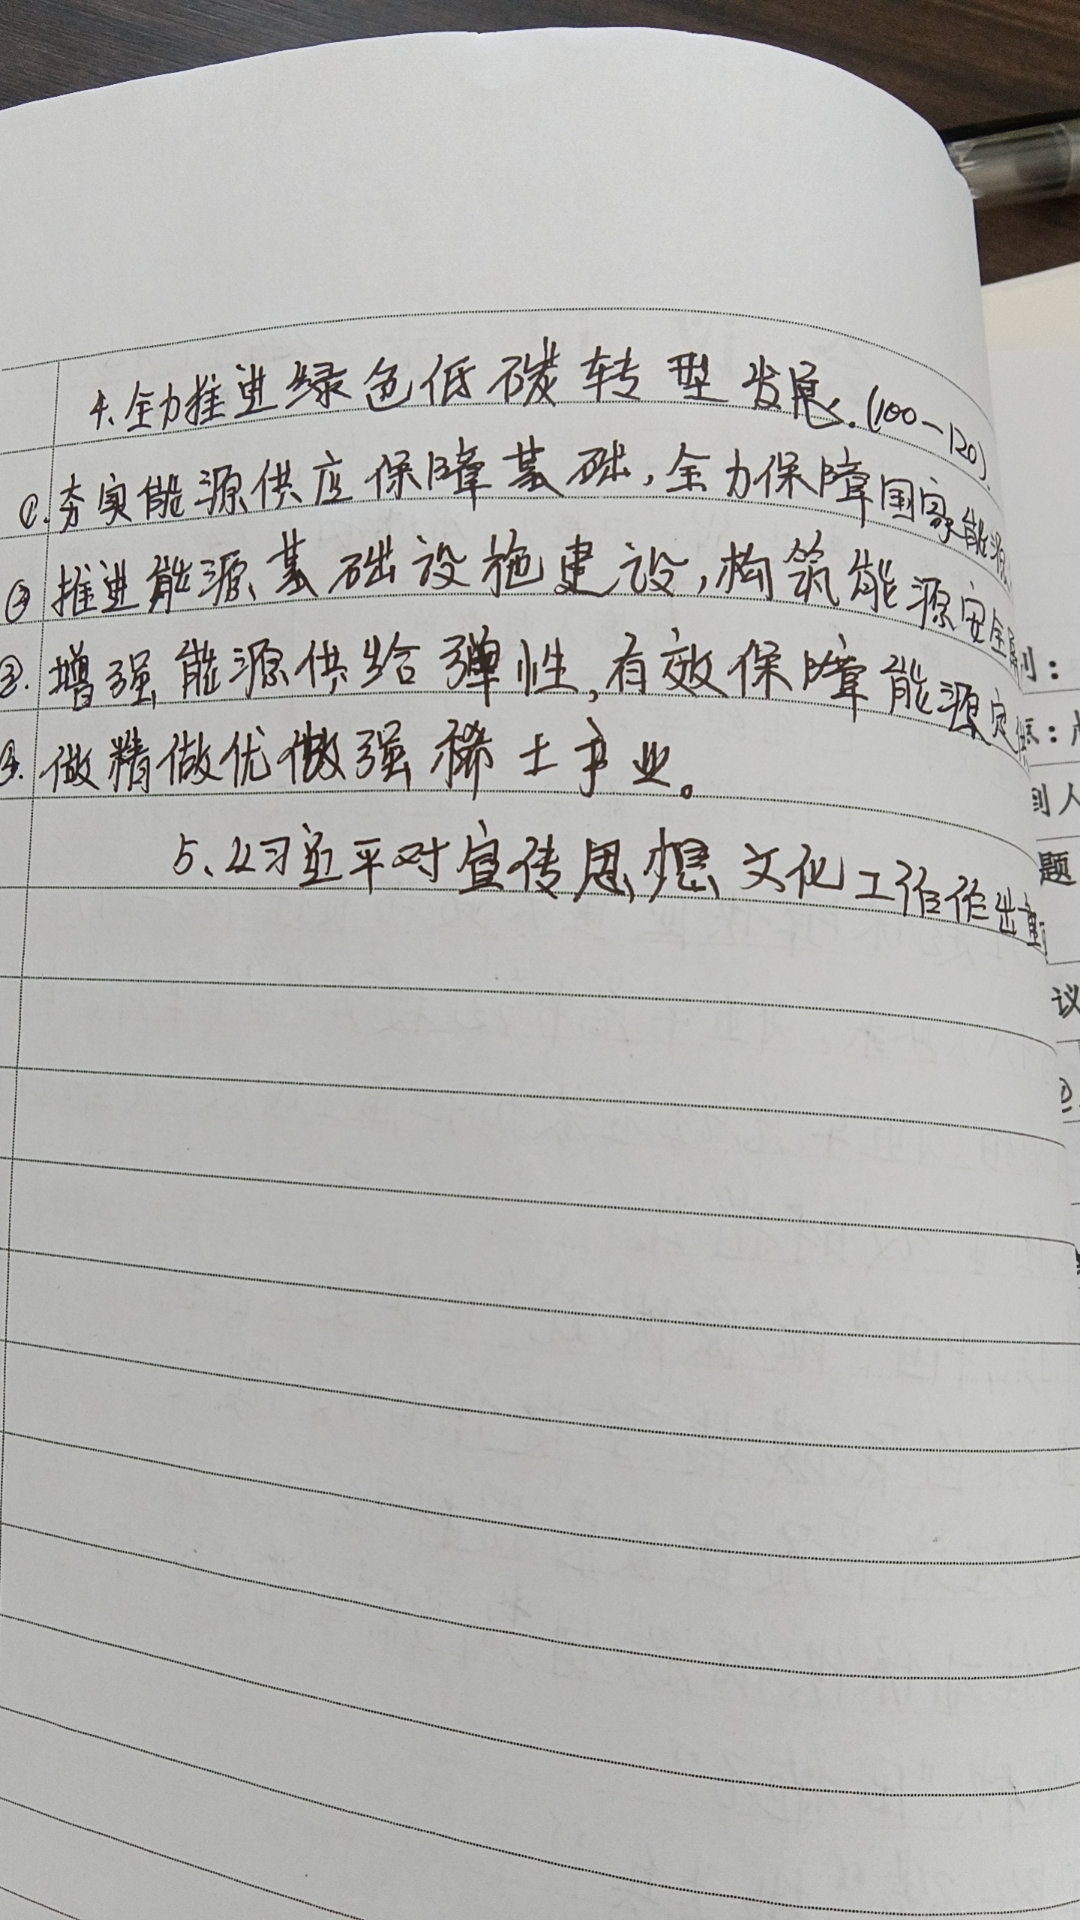 4.全力推进绿色低碳转型发展.(100-120).
①.夯实能源供应保障基础,全力保障国家能源
② 推进能源基础设施建设,构筑能源安全
③.增强能源供给弹性,有效保障能源
④.做精做优做强稀土产业。
5、《习近平对宣传思想文化工作作出重
到人
题
议